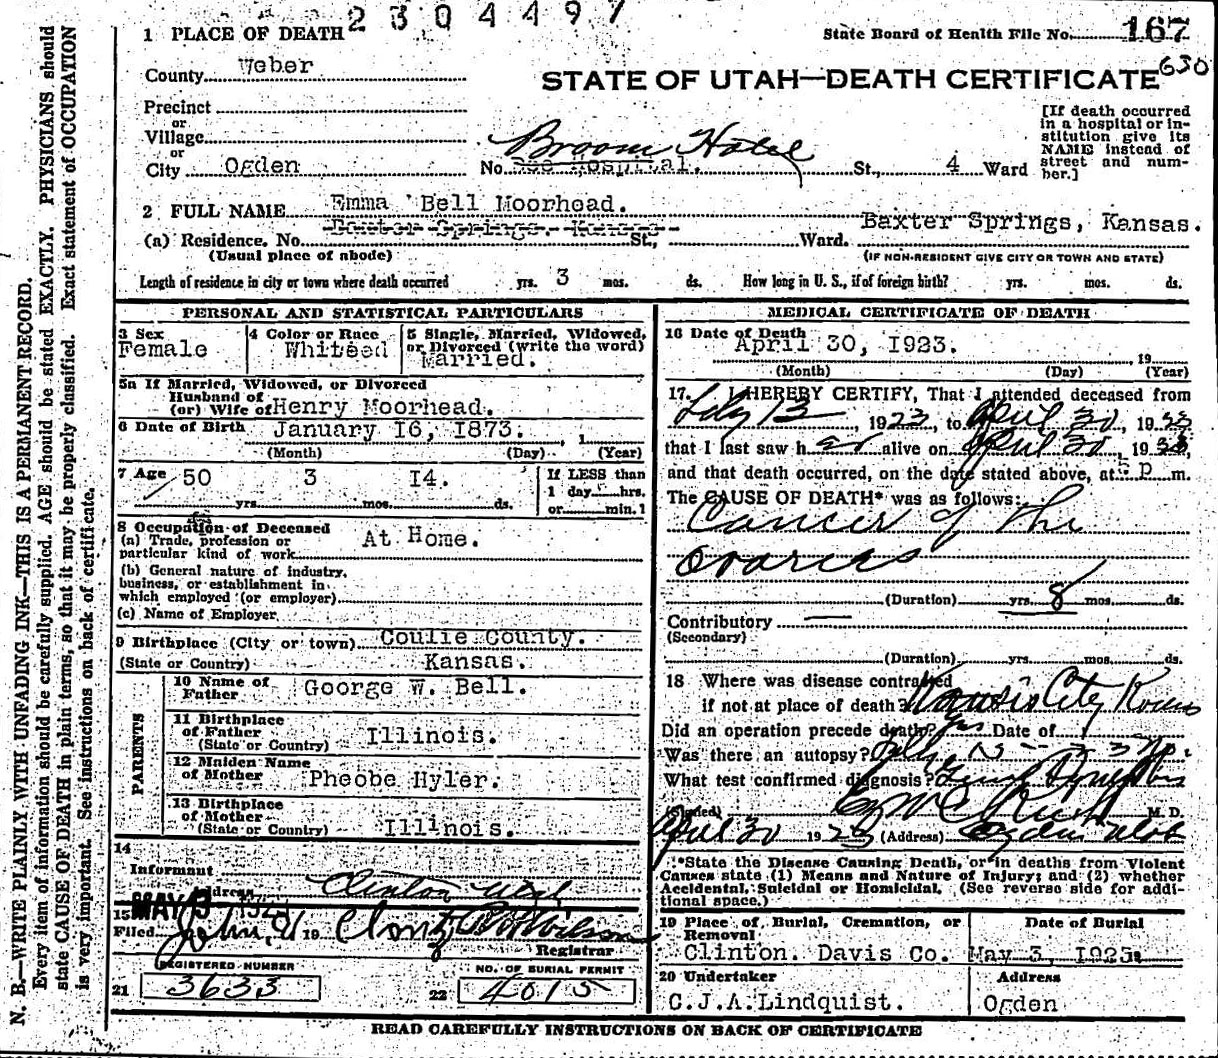 2304497
1 PLACE OF DEATH
State Board of Health File No. 167
630
County Weber
STATE OF UTAH—DEATH CERTIFICATE
Precinct
or
Village
or
City Ogden
No. Dee Hospital. Broom Hotel St., 4 Ward
[If death occurred in a hospital or institution give its NAME instead of street and number.]
2 FULL NAME Emma Bell Moorhead.
Baxter Springs, Kansas.
(a) Residence. No. St., Ward. Baxter Springs, Kansas.
(Usual place of abode)
(IF NON-RESIDENT GIVE CITY OR TOWN AND STATE)
Length of residence in city or town where death occurred yrs. 3 mos. ds. How long in U. S., if of foreign birth? yrs. mos. ds.
PERSONAL AND STATISTICAL PARTICULARS
3 Sex
Female
4 Color or Race
White
5 Single, Married, Widowed, or Divorced (write the word)
Married.
5a If Married, Widowed, or Divorced
Husband of
(or) Wife of Henry Moorhead.
6 Date of Birth January 16, 1873. , 1
(Month) (Day) (Year)
7 Age 50 yrs. 3 mos. 14. ds.
If LESS than
1 day hrs.
or min. 1
8 Occupation of Deceased
(a) Trade, profession or particular kind of work At Home.
(b) General nature of industry, business, or establishment in which employed (or employer)
(c) Name of Employer
9 Birthplace (City or town) Coulie County.
(State or Country) Kansas.
PARENTS
10 Name of Father George W. Bell.
11 Birthplace of Father
(State or Country) Illinois.
12 Maiden Name of Mother Pheobe Hyler.
13 Birthplace of Mother
(State or Country) Illinois.
14
Informant
Address Clinton Utah
15 MAY 3 192
Filed 19
Registrar
REGISTERED NUMBER
21 3633
NO. OF BURIAL PERMIT
22 4015
MEDICAL CERTIFICATE OF DEATH
16 Date of Death
April 30, 1923. 19
(Month) (Day) (Year)
17. I HEREBY CERTIFY, That I attended deceased from
13 1923, to April 30 1923
that I last saw her alive on April 30, 1923,
and that death occurred, on the date stated above, at 5 p m.
The CAUSE OF DEATH* was as follows:
Cancer of the
ovaries
(Duration) yrs. 8 mos. ds.
Contributory
(Secondary)
(Duration) yrs. mos. ds.
18 Where was disease contracted
if not at place of death? Kansas City Kans
Did an operation precede death? yes Date of
Was there an autopsy?
What test confirmed diagnosis?
(Signed) M. D.
April 30 1923 (Address) Ogden Utah
*State the Disease Causing Death, or in deaths from Violent Causes state (1) Means and Nature of Injury; and (2) whether Accidental, Suicidal or Homicidal. (See reverse side for additional space.)
19 Place of Burial, Cremation, or Removal
Clinton. Davis Co.
Date of Burial
May 3, 1923.
20 Undertaker
C.J.A. Lindquist.
Address
Ogden
READ CAREFULLY INSTRUCTIONS ON BACK OF CERTIFICATE
N. B.—WRITE PLAINLY WITH UNFADING INK—THIS IS A PERMANENT RECORD.
Every item of information should be carefully supplied. AGE should be stated EXACTLY. PHYSICIANS should
state CAUSE OF DEATH in plain terms, so that it may be properly classified. Exact statement of OCCUPATION
is very important. See instructions on back of certificate.